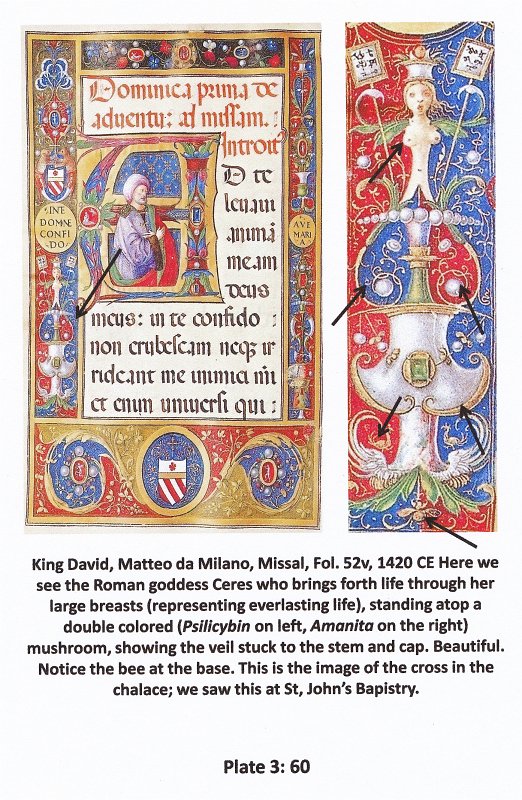 Dominica prima de
aduentu: ad missam.
Introit
A
D te
leuaui
anima
meam
deus
meus: in te confido
non erubescam neq ir
rideant me inimici mi
et enim uniuersi qui :
IN TE
DOMNE
CONFI
DO
AVE
MARI
A
King David, Matteo da Milano, Missal, Fol. 52v, 1420 CE Here we
see the Roman goddess Ceres who brings forth life through her
large breasts (representing everlasting life), standing atop a
double colored (Psilicybin on left, Amanita on the right)
mushroom, showing the veil stuck to the stem and cap. Beautiful.
Notice the bee at the base. This is the image of the cross in the
chalace; we saw this at St, John's Bapistry.
Plate 3: 60